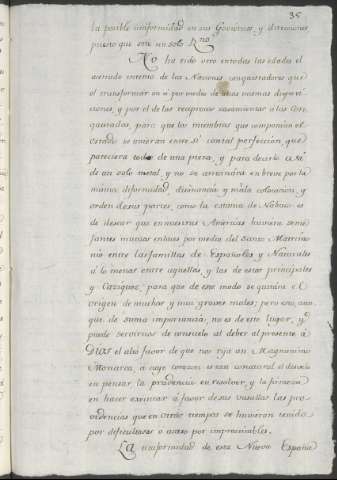 35
la posible uniformidad en sus Goviernos, y direcciones
puesto que son un solo Rno.
No ha sido otro en todas las edades el
acertado intento de las Naciones conquistadoras que
el transformar en si por medio de unas mismas disposi-
ciones, y por el de los reciprocos casamientos a las con-
quistadas, para que los miembros que componian el
estado se unieran entre si contal perfeccion, que
pareciera todo de una pieza, y para decirlo asi
de un solo metal, y no se arruinara en breve por la
misma diformidad, disonancia, y mala colocacion, y
orden de sus partes, como la estatua de Nabuco: es
de desear que en nuestras Américas huviera seme-
jantes mutuos enlaces por medio del Santo Matrimo-
nio entre las familias de Españoles y Naturales
a lo menos entre aquellas, y las de estos principales
y Caziques, para que de este modo se quitára el
origen de muchos y muy graves males; pero esto, aun
que de suma importancia, no es de este lugar, y
puede servirnos de consuelo al deber al presente á
Dios el alto favor de que nos rija un Magnanimo
Monarca, a cuyo corazon es tan connatural el desvelo
en pensar, la prudencia en resolver, y la firmeza
en hacer executar á favor de sus vasallos las pro-
videncias que en otros tiempos se huvieran tenido
por dificultosas o acaso por impracticables.
La uniformidad de esta Nueva España